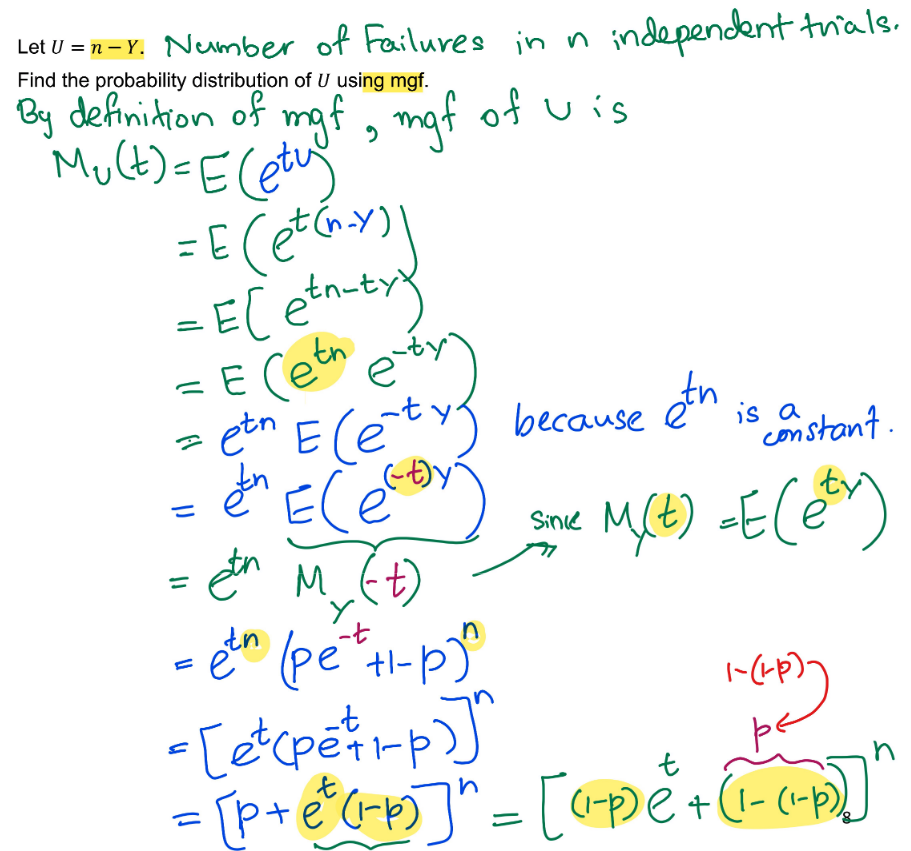 Let U = n − Y. Number of Failures in n independent trials.
Find the probability distribution of U using mgf.
By definition of mgf, mgf of U is
M_U(t) = E(e^{tU})
= E(e^{t(n-Y)})
= E(e^{tn-tY})
= E(e^{tn} e^{-tY})
= e^{tn} E(e^{-tY}) because e^{tn} is a constant.
= e^{tn} E(e^{(-t)Y})
since M_Y(t) = E(e^{tY})
= e^{tn} M_Y(-t)
= e^{tn} (pe^{-t} + 1-p)^n
1-(1-p)
= [e^t(pe^{-t} + 1-p)]^n
p
= [p + e^t(1-p)]^n = [(1-p)e^t + (1-(1-p))]^n
8